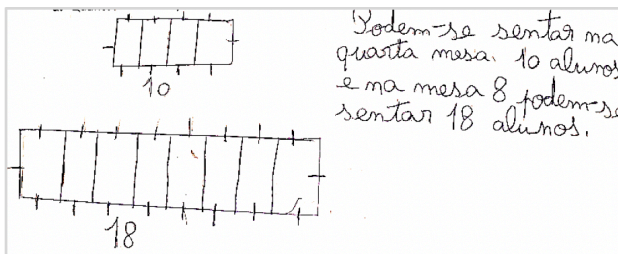 10
18
Podem-se sentar na
quarta mesa. 10 alunos
e na mesa 8 podem-se
sentar 18 alunos.